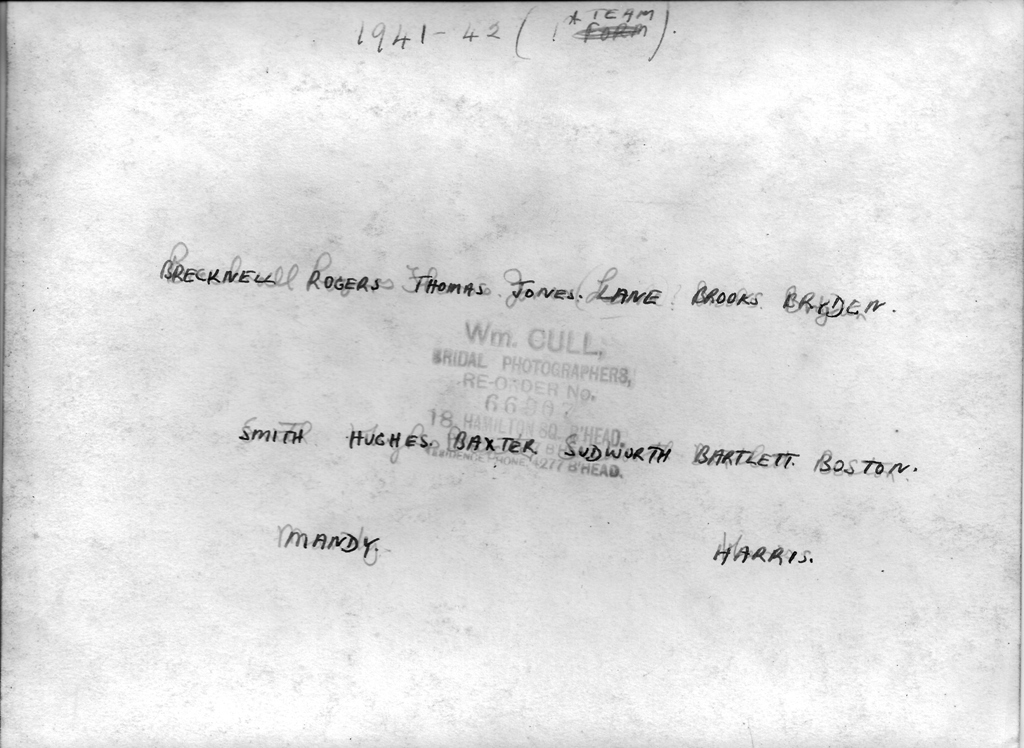 1941-42 (1 A TEAM
FORM).
BRECKNELL ROGERS THOMAS JONES. LANE BROOKS BRYDEN.
Wm. CULL,
BRIDAL PHOTOGRAPHERS,
RE-ORDER No.
18, HAMILTON SQ. B'HEAD.
SMITH HUGHES. BAXTER SUDWORTH BARTLETT. BOSTON.
RESIDENCE PHONE 4277 B'HEAD.
MANDY.
HARRIS.